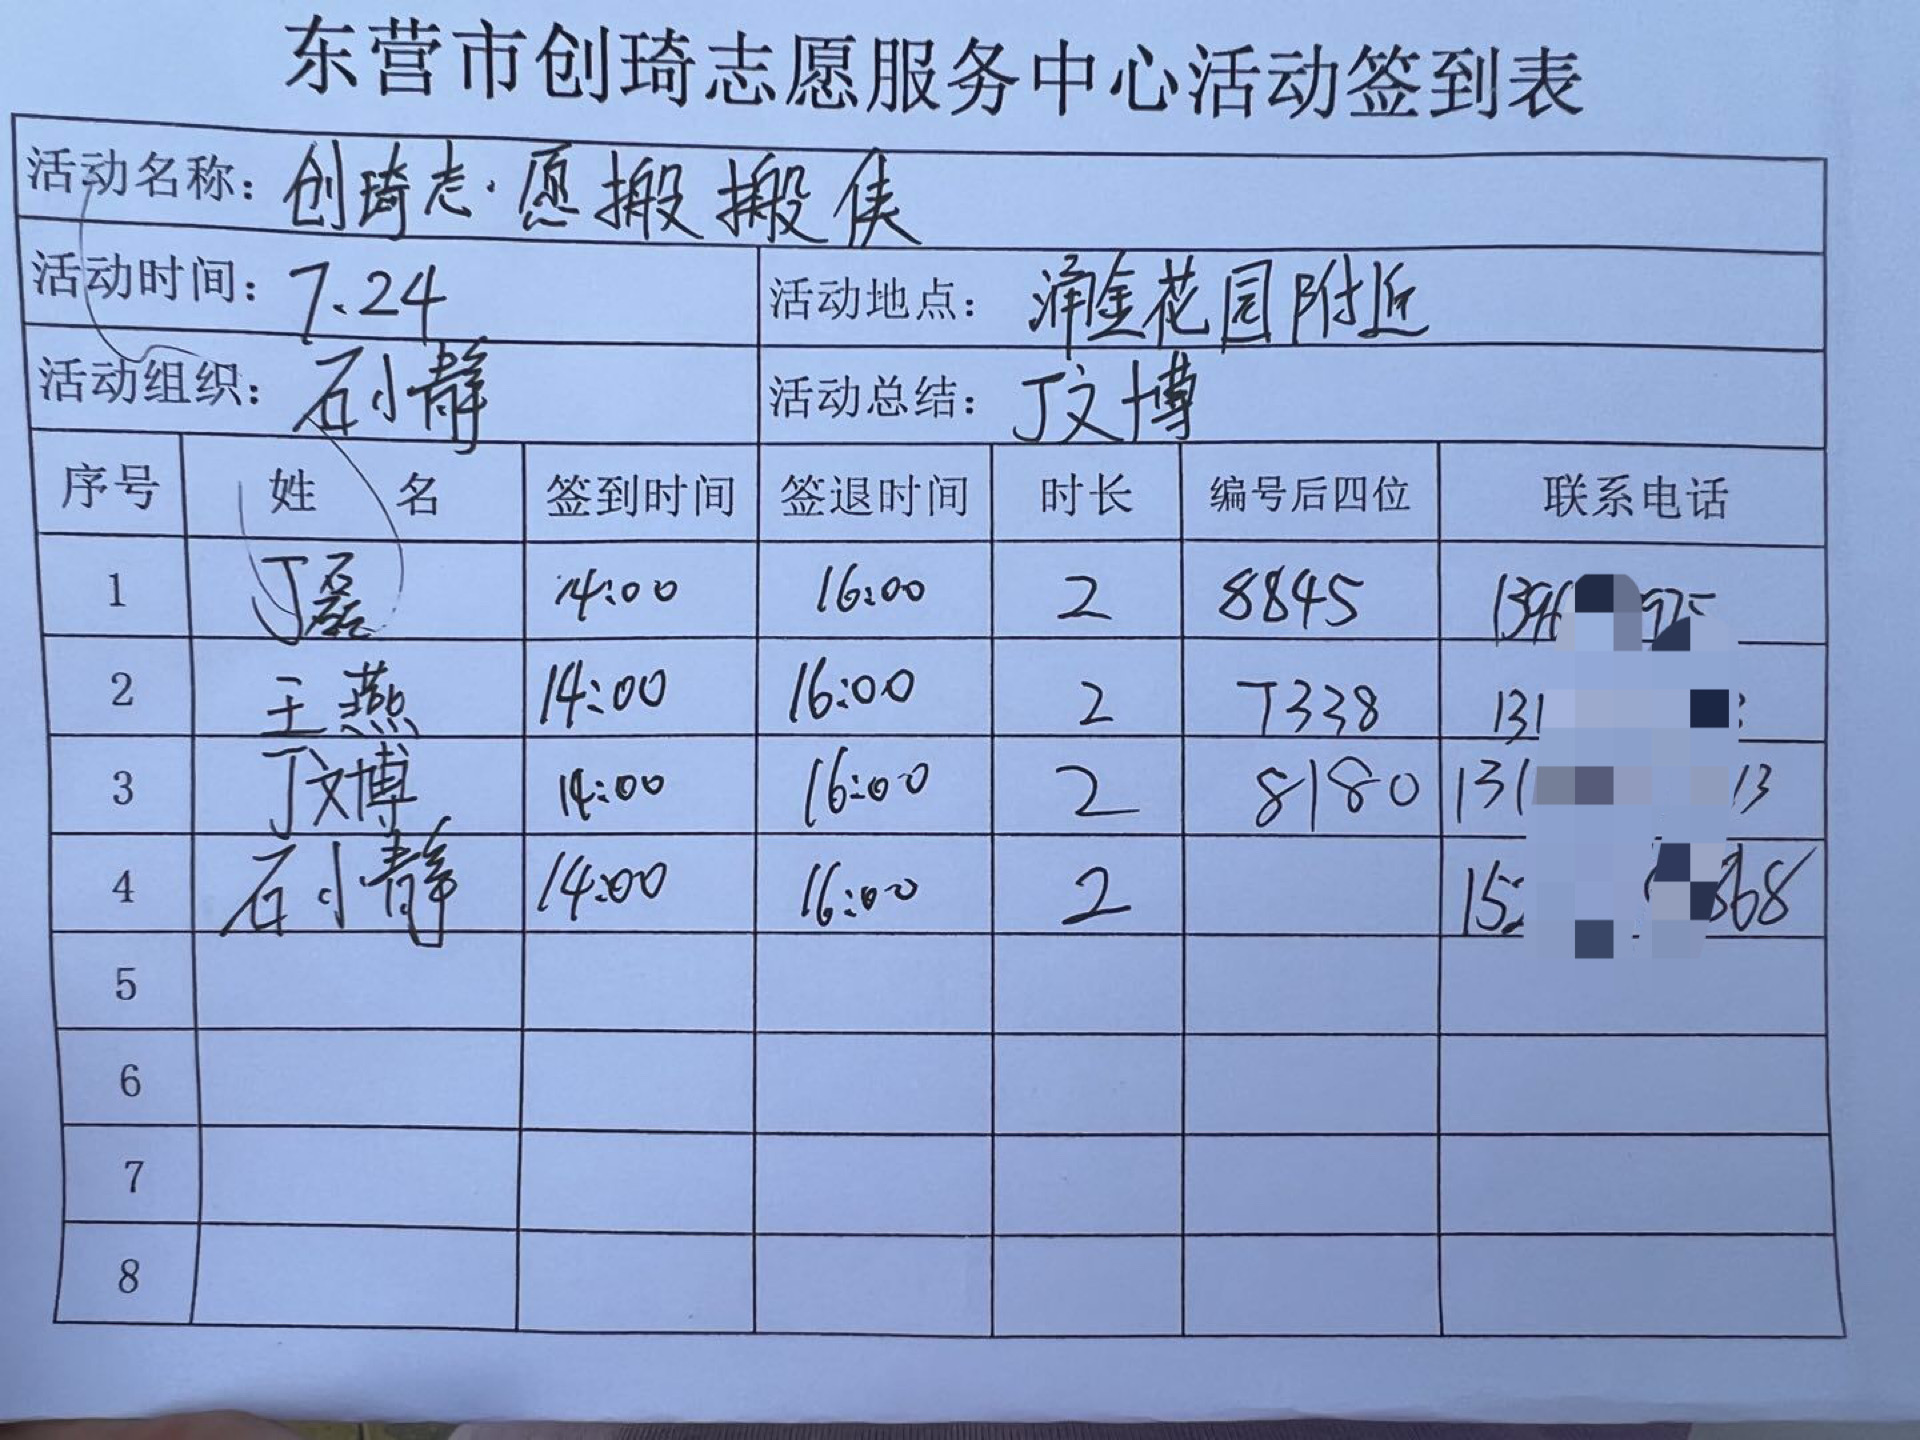 东营市创琦志愿服务中心活动签到表
活动名称: 创琦志·愿搬搬侠
活动时间: 7.24 活动地点: 涌金花园附近
活动组织: 石小静 活动总结: 丁文博
序号 姓 名 签到时间 签退时间 时长 编号后四位 联系电话
1 丁磊 14:00 16:00 2 8845
2 王燕 14:00 16:00 2 7338 131
3 丁文博 14:00 16:00 2 8180 131 13
4 石小静 14:00 16:00 2 152 868
5
6
7
8